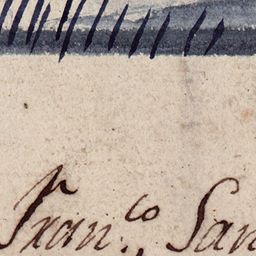 Fran.co San